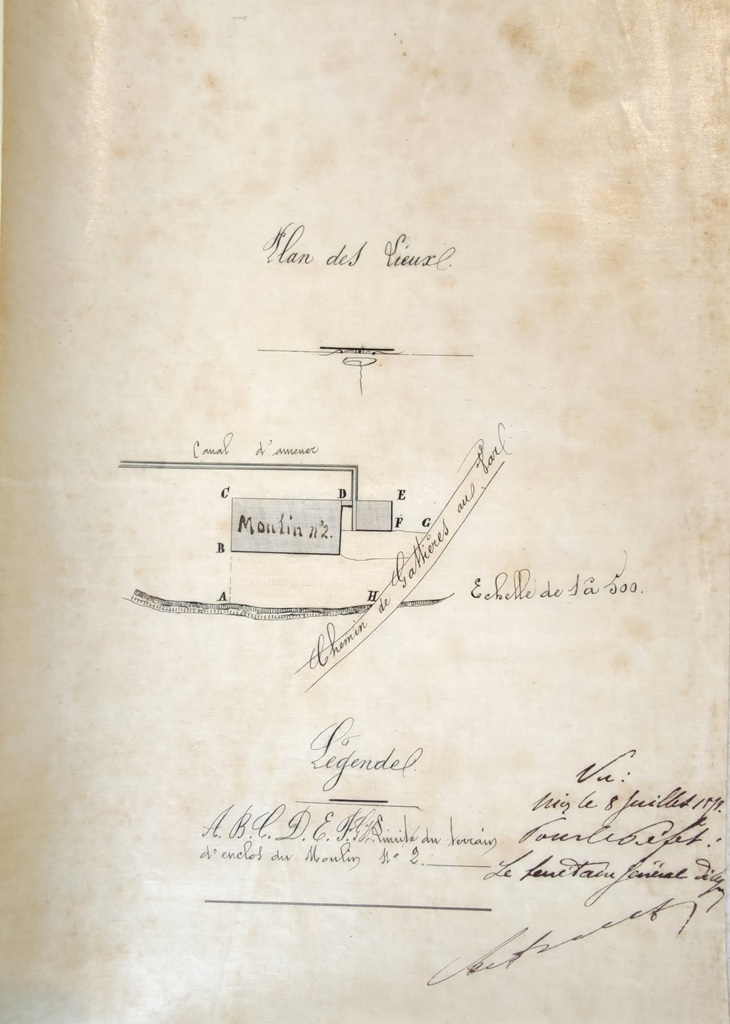 Plan des Lieux
Canal d'amener
C D E
Moulin n°2.
F G
B
A H
Chemin de Gattières au Var
Echelle de 1 à 500.
Légende
A. B. C. D. E. F. G. H. Limite du terrain
d'enclos du Moulin N° 2.
Vu:
Nice le 8 Juillet
Pour le Préfet:
Le Secrétaire général